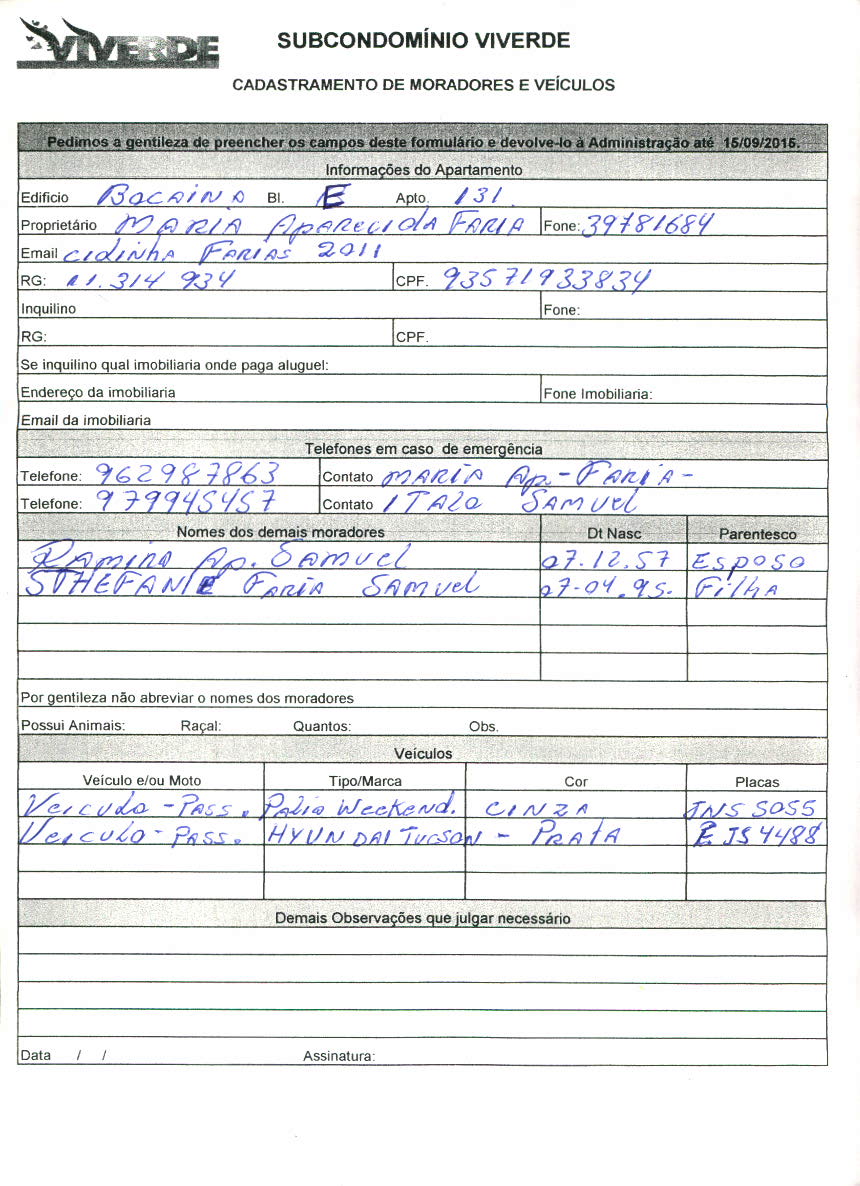 VIVERDE
SUBCONDOMÍNIO VIVERDE
CADASTRAMENTO DE MORADORES E VEÍCULOS
Pedimos a gentileza de preencher os campos deste formulário e devolve-lo à Administração até 15/09/2015.
Informações do Apartamento
Edificio BOCAINA Bl. E Apto. 131.
Proprietário MARIA APARECIDA FARIA Fone: 39781684
Email cidinha FARIAS 2011
RG: 11.314 934 CPF. 93571933834
Inquilino Fone:
RG: CPF.
Se inquilino qual imobiliaria onde paga aluguel:
Endereço da imobiliaria Fone Imobiliaria:
Email da imobiliaria
Telefones em caso de emergência
Telefone: 962987863 Contato MARIA Ap. - FARIA -
Telefone: 979945457 Contato ITALO SAMUEL
Nomes dos demais moradores Dt Nasc Parentesco
RAMIRO Ap. SAMUEL 07.12.57 ESPOSO
STHEFANIE FARIA SAMUEL 07-04.95. Filha
Por gentileza não abreviar o nomes dos moradores
Possui Animais: Raçal: Quantos: Obs.
Veículos
Veículo e/ou Moto Tipo/Marca Cor Placas
Veiculo - PASS. Palio Weekend. CINZA JNS 5055
Veiculo - PASS. HYUNDAI TUCSON - PRATA EJS 4488
Demais Observações que julgar necessário
Data / / Assinatura: